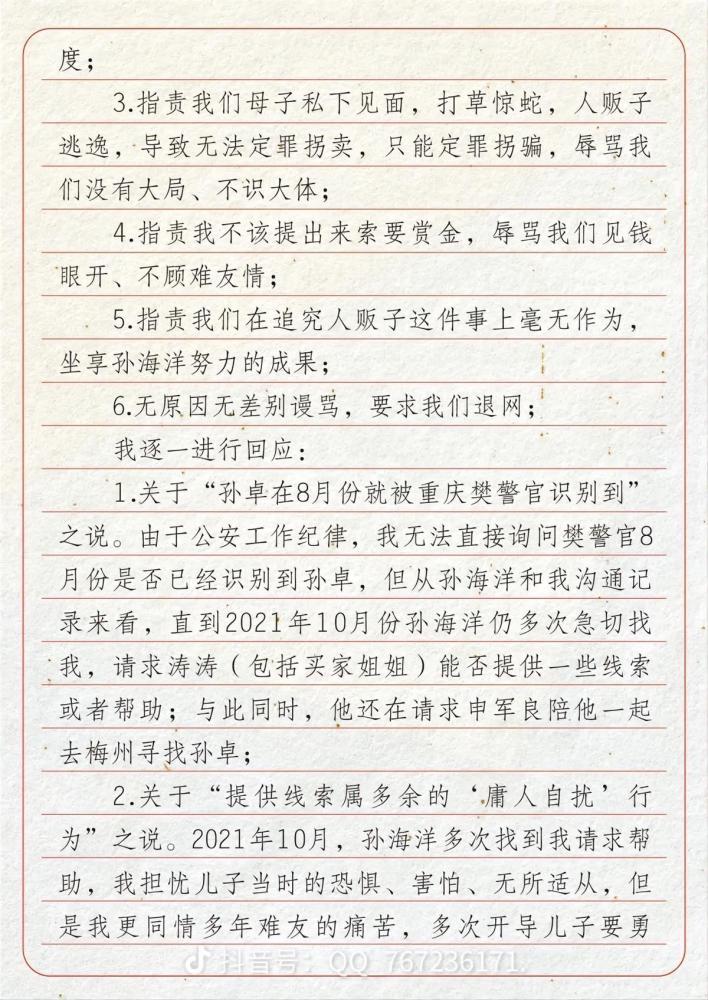 度；
3.指责我们母子私下见面，打草惊蛇，人贩子
逃逸，导致无法定罪拐卖，只能定罪拐骗，辱骂我
们没有大局、不识大体；
4.指责我不该提出来索要赏金，辱骂我们见钱
眼开、不顾难友情；
5.指责我们在追究人贩子这件事上毫无作为，
坐享孙海洋努力的成果；
6.无原因无差别谩骂，要求我们退网；
我逐一进行回应：
1.关于“孙卓在8月份就被重庆樊警官识别到”
之说。由于公安工作纪律，我无法直接询问樊警官8
月份是否已经识别到孙卓，但从孙海洋和我沟通记
录来看，直到2021年10月份孙海洋仍多次急切找
我，请求涛涛（包括买家姐姐）能否提供一些线索
或者帮助；与此同时，他还在请求申军良陪他一起
去梅州寻找孙卓；
2.关于“提供线索属多余的‘庸人自扰’行
为”之说。2021年10月，孙海洋多次找到我请求帮
助，我担忧儿子当时的恐惧、害怕、无所适从，但
是我更同情多年难友的痛苦，多次开导儿子要勇
抖音号：QQ_767236171.